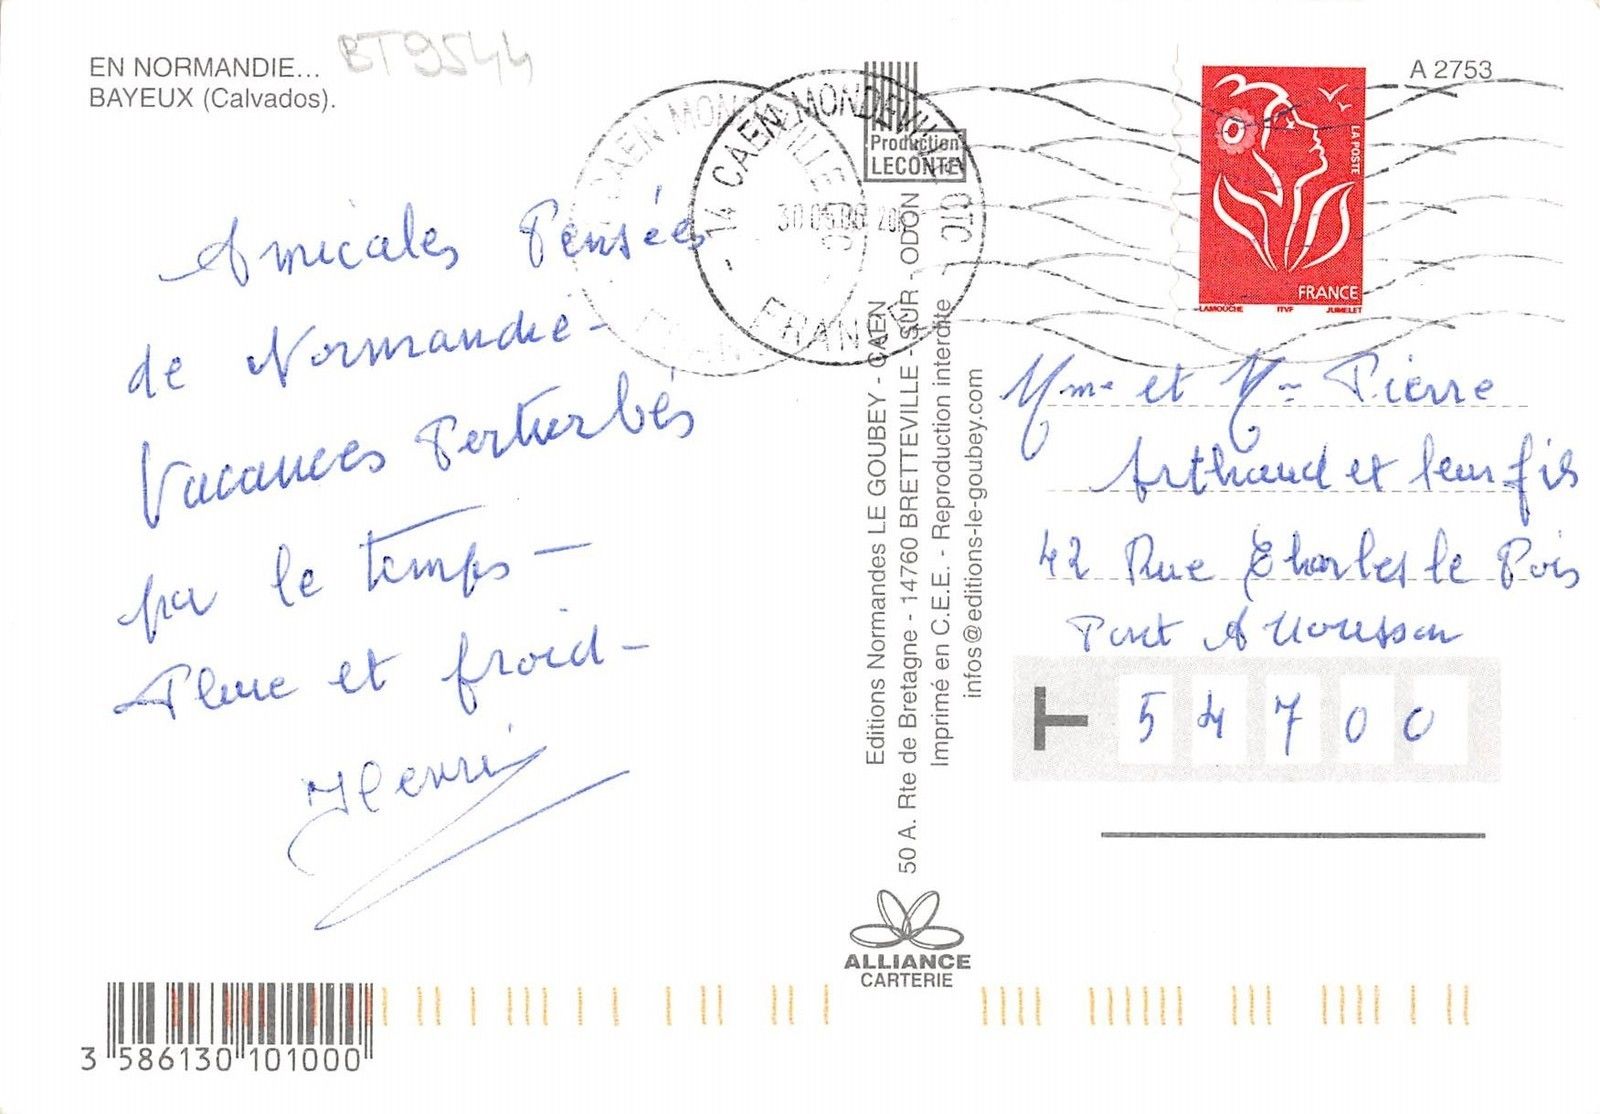 EN NORMANDIE...
BAYEUX (Calvados).
BT9544
Amicales Pensées
de Normandie -
Vacances Perturbés
par le temps -
Pluie et froid -
Henri
14 CAEN MONDEVILLE CTC
FRANCE
Production
LECONTE
Editions Normandes LE GOUBEY - CAEN
50 A. Rte de Bretagne - 14760 BRETTEVILLE - SUR - ODON
Imprimé en C.E.E. - Reproduction interdite
infos@editions-le-goubey.com
ALLIANCE
CARTERIE
A 2753
LA POSTE
FRANCE
LAMOUCHE ITVF JUMELET
Mme et Mr Pierre
Arthaud et leur fils
42 Rue Charles le Pois
Pont A Mousson
54700
3 586130 101000